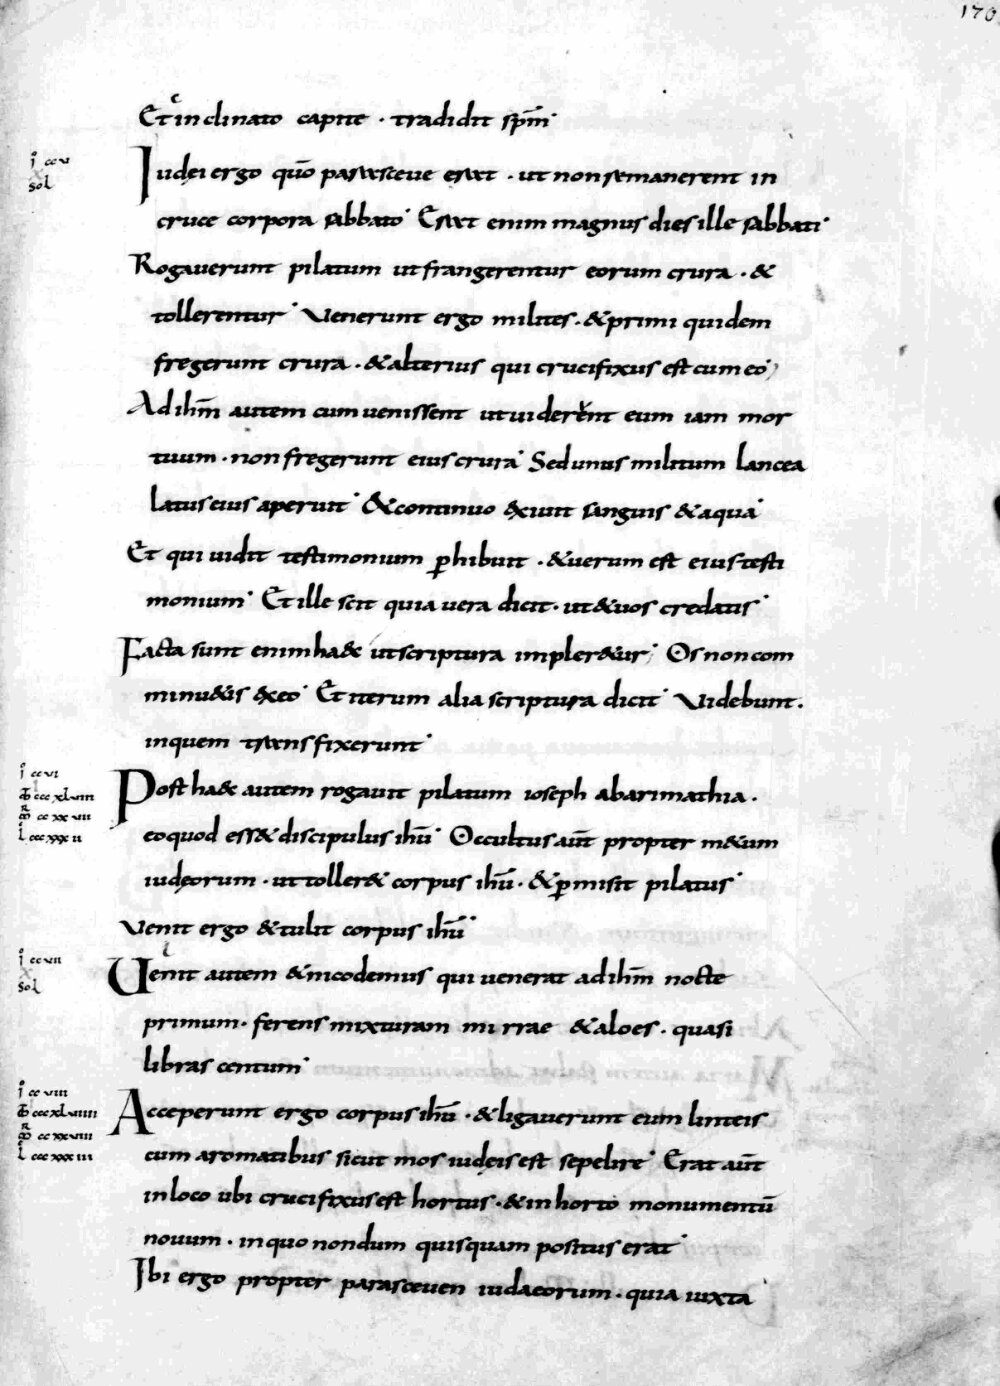 170
Et inclinato capite · tradidit sp̄m
i ccvi
sol
Iudęi ergo quō parasceue erat · ut non remanerent in
cruce corpora sabbato Erat enim magnus dies ille sabbati
Rogauerunt pilatum ut frangerentur eorum crura · &
tollerentur Venerunt ergo milites · & primi quidem
fregerunt crura · & alterius qui crucifixus est cum eo
Ad ih̄m autem cum uenissent ut uiderent eum iam mor
tuum · non fregerunt eius crura Sed unus militum lancea
latus eius aperuit & continuo exiuit sanguis & aqua
Et qui uidit testimonium ꝑhibuit · & uerum est eius testi
monium Et ille scit quia uera dicit · ut & uos credatis
Facta sunt enim haec ut scriptura impler&ur Os non com
minu&is ex eo Et iterum alia scriptura dicit Videbunt ·
in quem transfixerunt
i ccvi
ccc xlviii
cc xxvii
l ccc xxx ii
Post haec autem rogauit pilatum ioseph abarimathia ·
eo quod ess& discipulus ih̄u Occultus aūt propter m&um
iudęorum · ut toller& corpus ih̄u · & ꝑmisit pilatus
Venit ergo & tulit corpus ih̄u
i ccvii
sol
Uenit autem & nicodemus qui uenerat ad ih̄m nocte
primum · ferens mixturam mirrae & aloes · quasi
libras centum
i ccviii
ccc xlviiii
cc xxviii
l ccc xxx iii
Acceperunt ergo corpus ih̄u · & ligauerunt eum linteis
cum aromatibus sicut mos iudęis est sepelire Erat aūt
in loco ubi crucifixus est hortus · & in horto monumentū
nouum · in quo nondum quisquam positus erat
Ibi ergo propter parasceuen iudaeorum · quia iuxta